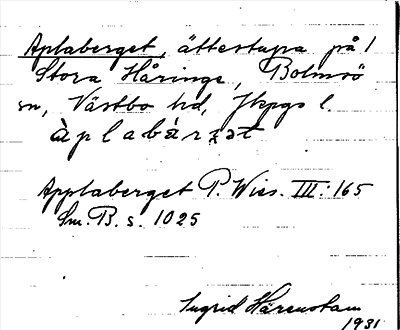 Aplaberget, ättestupa på
Stora Håringe, Bolmsö
sn, Västbo hd, Jkpgs l.
àplabæ̀rjət
Applaberget P. Wies. III: 165
Sm. B. s. 1025
Ingrid Härenstam
1931